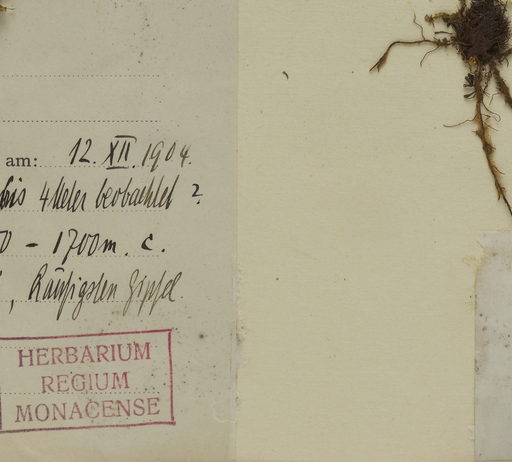 am: 12. XII. 1904.
bis 4 Meter beobachtet ?
0 - 1700m. c.
, häufigsten Gipfel
HERBARIUM
REGIUM
MONACENSE